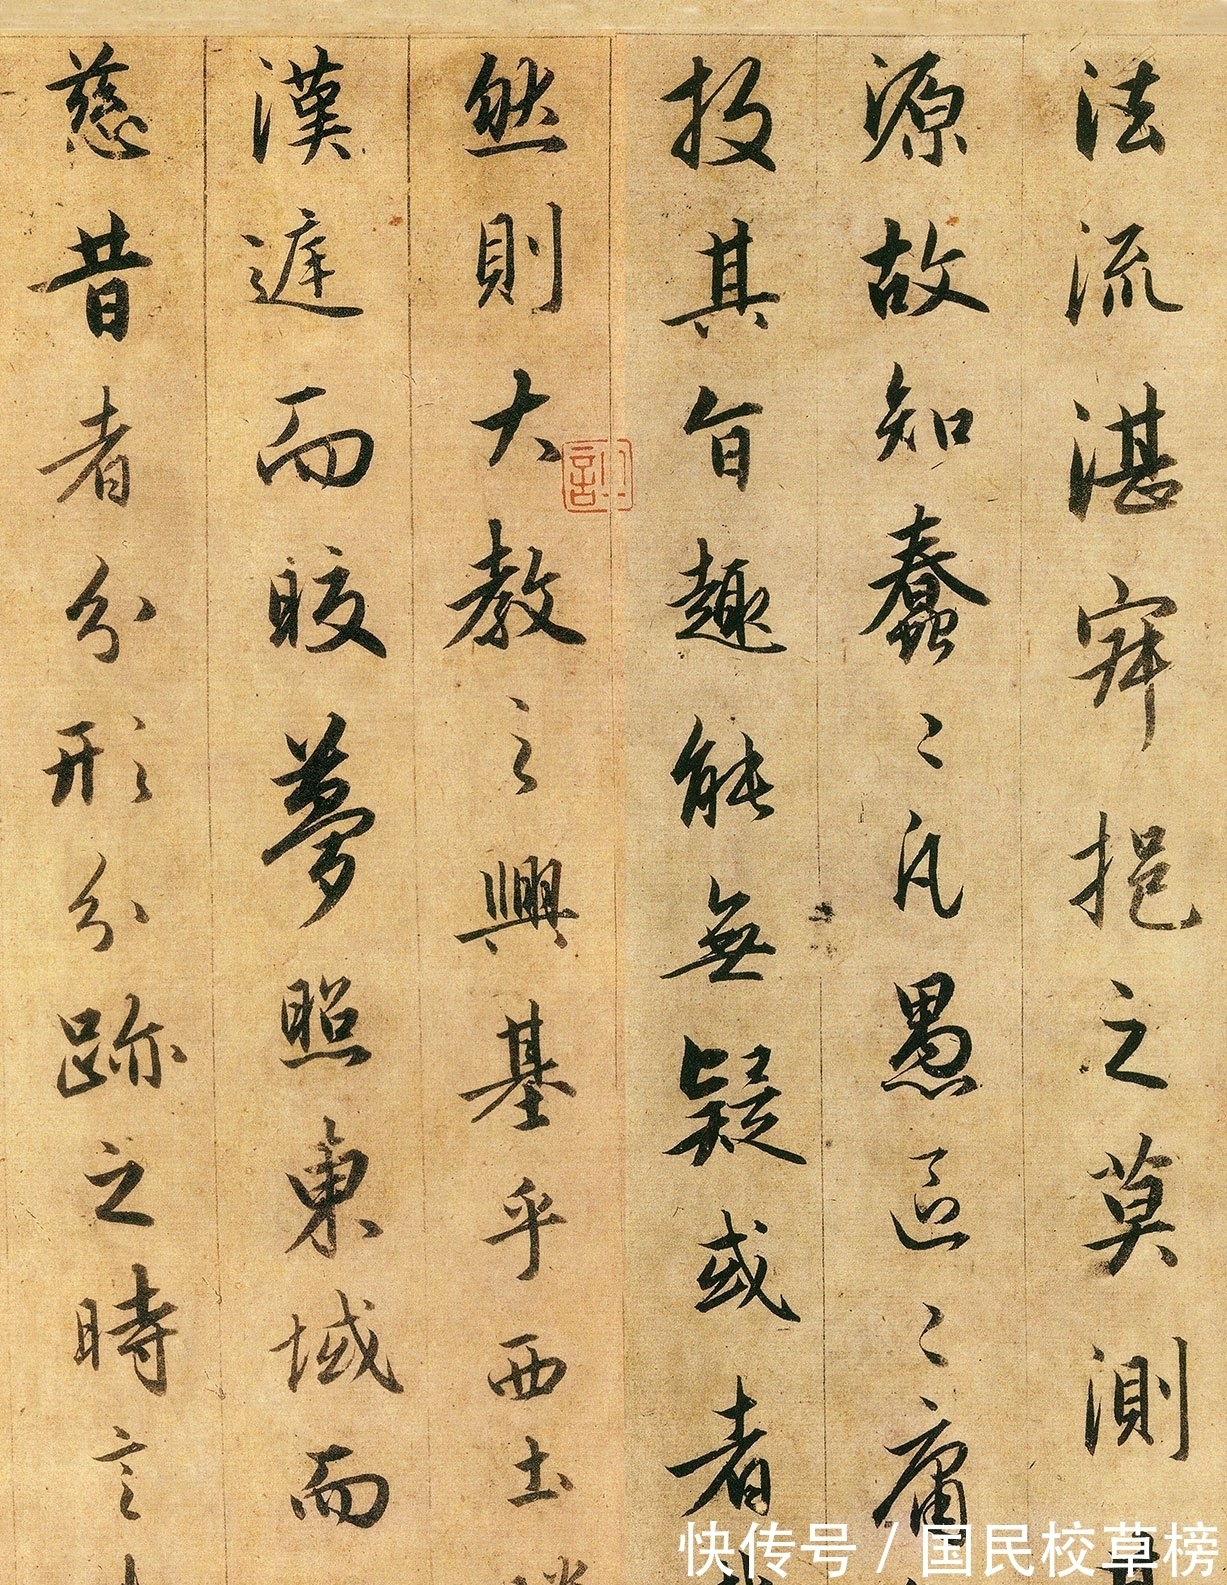 法流湛寂挹之莫測
源故知蠢〻凡愚區〻庸
投其旨趣能無疑或者
然則大教之興基乎西土
漢庭而皎夢照東域而
慈昔者分形分跡之時言
快传号 / 国民校草榜